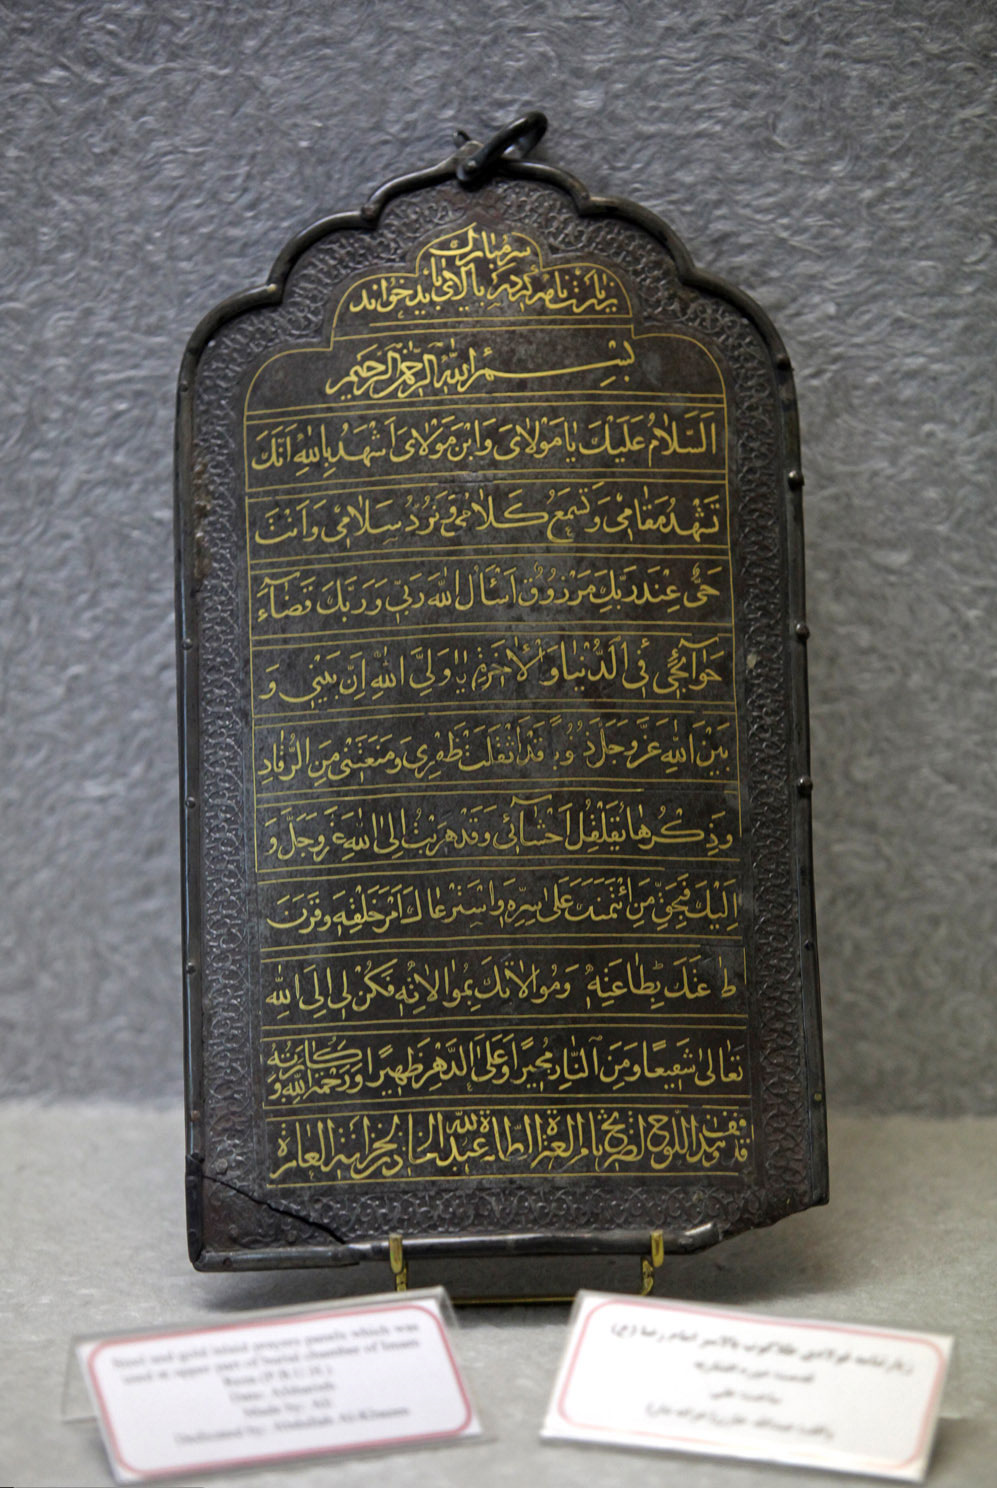 سر مبارک
زیارتنامه که در بالای باید خواند
بِسْمِ اللهِ الرَّحْمٰنِ الرَّحیمِ
اَلسَّلٰامُ عَلَیْكَ یٰا مَوْلٰایَ وَابْنَ مَوْلٰایَ اَشْهَدُ بِاللهِ اَنَّكَ
تَشْهَدُ مَقٰامی وَ تَسْمَعُ كَلٰامی وَ تَرُدُّ سَلٰامی وَ اَنْتَ
حَیٌّ عِنْدَ رَبِّكَ مَرْزُوقٌ اَسْئَالُ اللهَ رَبّی وَ رَبَّكَ قَضٰآءَ
حَوٰآئِجی فِی الدُّنْیٰا وَالْاٰخِرَةِ یٰا وَلِیَّ اللهِ اِنَّ بَیْنی وَ
بَیْنَ اللهِ عَزَّ وَجَلَّ ذُنُوبًا قَدْ اَثْقَلَتْ ظَهْری وَ مَنَعَتْنی مِنَ الرُّقٰادِ
وَذِكْرُهٰا یُقَلْقِلُ اَحْشٰآئی وَ قَدْ هَرَبْتُ اِلَی اللهِ عَزَّ وَجَلَّ وَ
اِلَیْكَ فَبِحَقِّ مَنِ ائْتَمَنَكَ عَلیٰ سِرِّهِ وَاسْتَرْعٰاكَ اَمْرَ خَلْقِهِ وَ قَرَنَ
طٰاعَتَكَ بِطٰاعَتِهِ وَ مُوٰالٰاتَكَ بِمُوٰالٰاتِهِ فَكُنْ لی اِلَی اللهِ
تَعٰالیٰ شَفیعًا وَ مِنَ النّٰارِ مُجیرًا وَ عَلَی الدَّهْرِ ظَهیرًا وَ رَحْمَةُ اللهِ وَ بَرَكٰاتُهُ
قد وقف هذا اللوح الضریح الطاهرة عبدالله الخازن الخزانة
Steel and gold inlaid prayers panels which was
used in upper part of burial chamber of Imam
Reza (P.B.U.H.)
Date: Afsharieh
Made by: Ali
Dedicated by: Abdullah Al-Khazen
زیارتنامه فولادی طلاکوب بالاسر امام رضا (ع)
قدمت: دوره افشاریه
ساخت: علی
واقف: عبدالله خازن(خزانه دار)